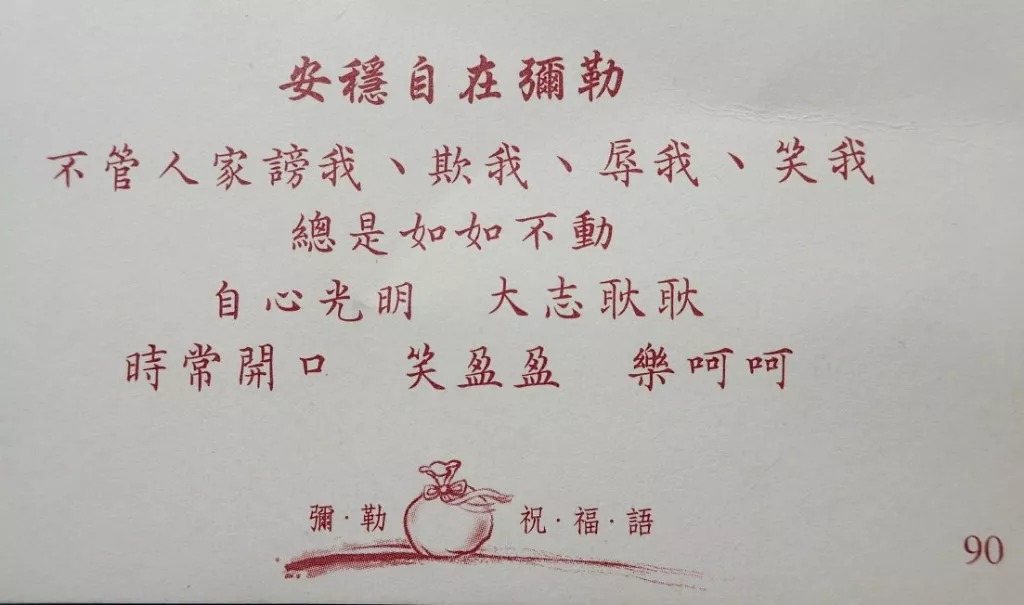 安穩自在彌勒
不管人家謗我、欺我、辱我、笑我
總是如如不動
自心光明　大志耿耿
時常開口　笑盈盈　樂呵呵
彌·勒 祝·福·語
90